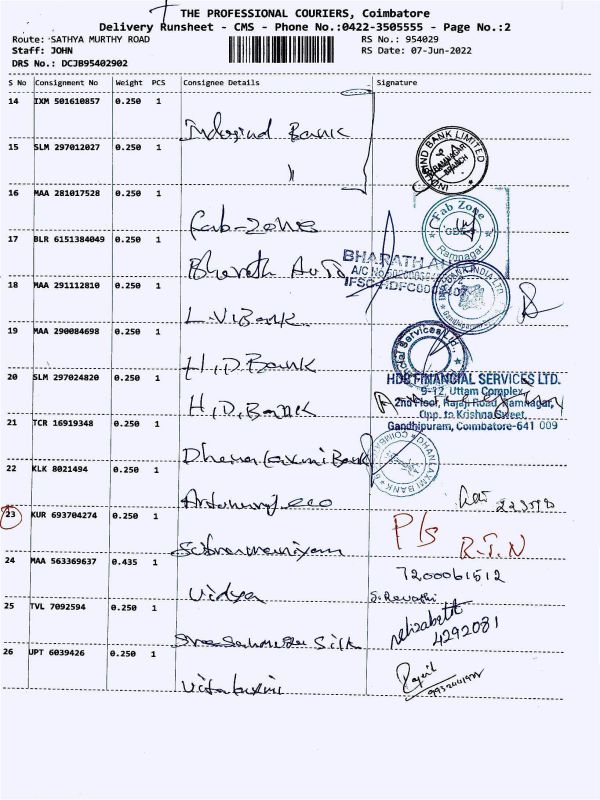 THE PROFESSIONAL COURIERS, Coimbatore
Delivery Runsheet - CMS - Phone No.:0422-3505555 - Page No.:2
Route: SATHYA MURTHY ROAD RS No.: 954029
Staff: JOHN RS Date: 07-Jun-2022
DRS No.: DCJB95402902
S No Consignment No Weight PCS Consignee Details Signature
14 IXM 501610857 0.250 1
Indusind Bank
15 SLM 297012027 0.250 1
"
INDUSIND BANK LIMITED
RAMNAGAR
BRANCH
16 MAA 281017528 0.250 1
Fab-Zone
Fab Zone
CBE
Ramnagar
17 BLR 6151384049 0.250 1
Bharath Auto
BHARATH
A/C No
IFSC:HDFC0002407
18 MAA 291112810 0.250 1
L.V.Bank
BANK INDIA LTD
19 MAA 290084698 0.250 1
H.D.Bank
Services Ltd
20 SLM 297024820 0.250 1
H.D.Bank
HDB FINANCIAL SERVICES LTD.
9-12, Uttam Complex,
2nd Floor, Rajaji Road, Ramnagar,
Opp. to Krishna Sweet,
Gandhipuram, Coimbatore-641 009
21 TCR 16919348 0.250 1
Dhanalaxmi Bank
DHANLAXMI BANK
COIMBATORE
22 KLK 8021494 0.250 1
23 KUR 693704274 0.250 1
P/s
R.T.N
24 MAA 563369637 0.435 1
Vidya
7200061512
S. Revathi
25 TVL 7092594 0.250 1
Silk
elizabeth
4292081
26 UPT 6039426 0.250 1